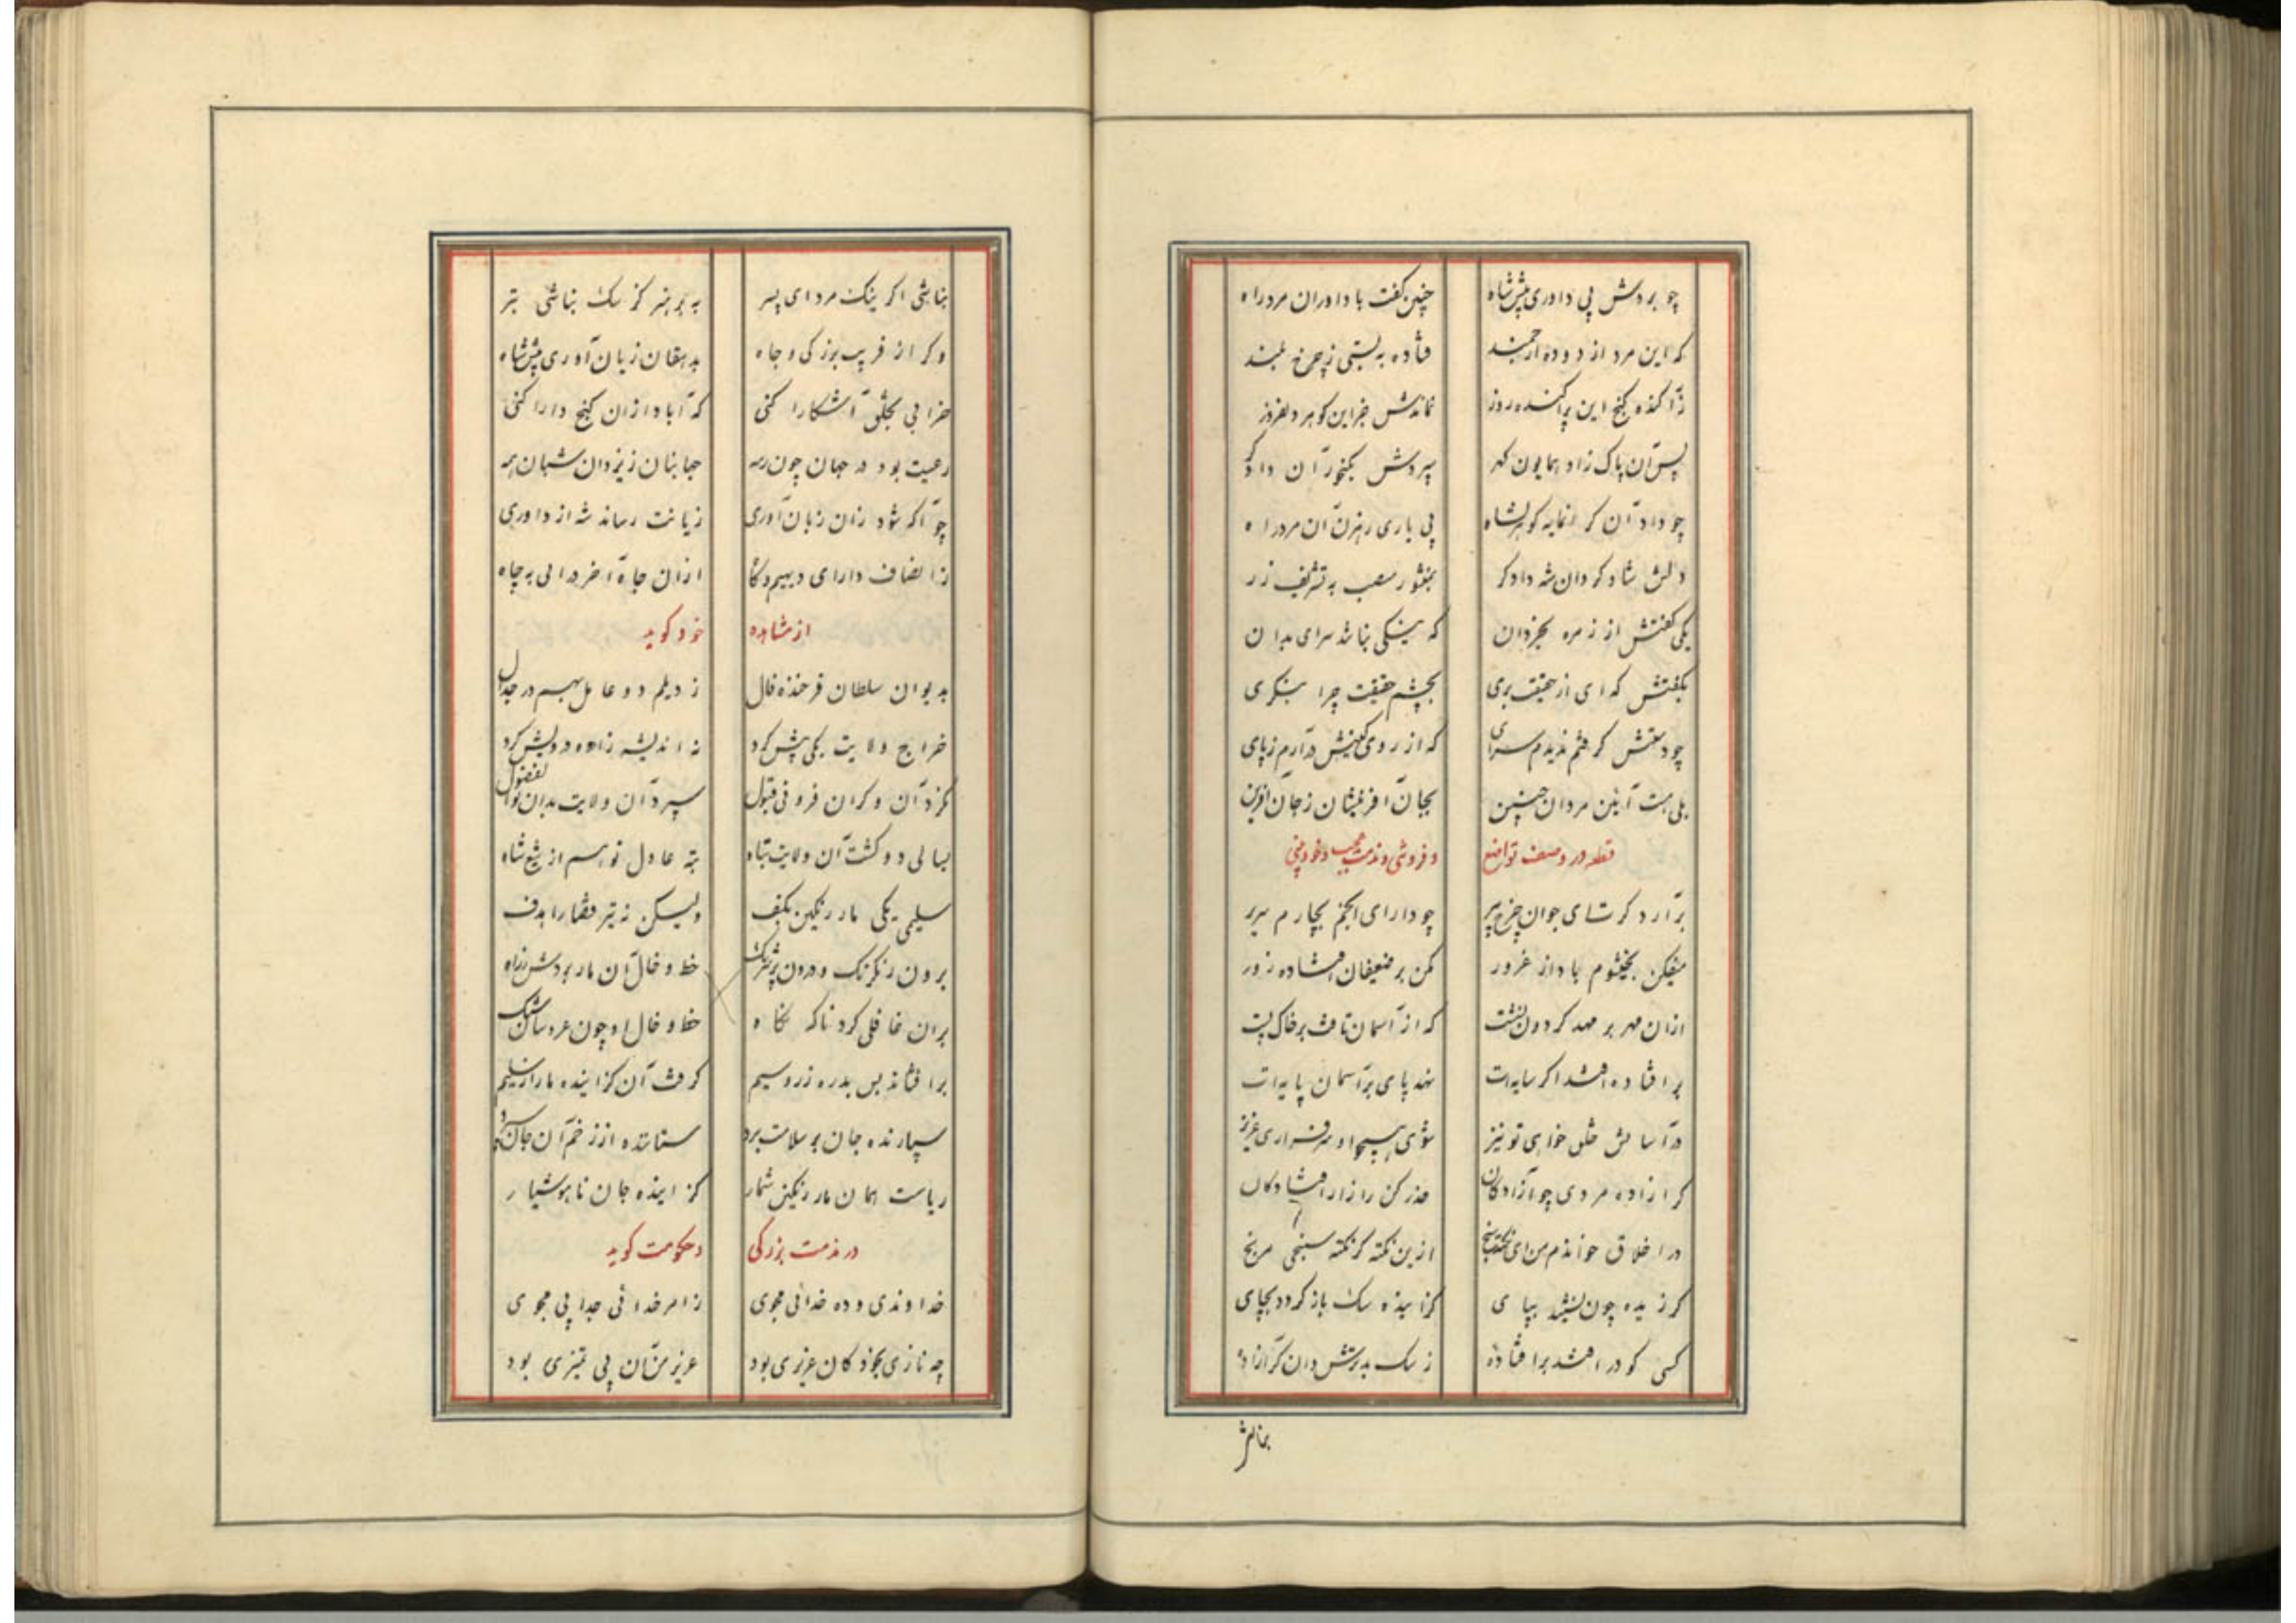 چو بردش پی داوری پیش شاه چنین گفت با داوران مرد راه
که این مرد از دوده ارجمند فتاده به پستی ز چرخ بلند
زآکنده گنج این پراکنده روز نماندش جز این گوهر دلفروز
پس آن پاک زاد همایون گهر سپردش بگنجور آن دادگر
چو داد آن گرانمایه گوهر بشاه پی یاری رهزن آن مرد راه
دلش شاد کرد آن شه دادگر بمنشور منصب به تشریف زر
یکی گفتش از زمره بخردان که نیکی نباشد سزای بدان
بگفتش که ای از حقیقت بری بچشم حقیقت چرا ننگری
چو دستش گرفتم ندیدم سزای که از روی کینش درآرم ز پای
بلی هست آیین مردان چنین بجان آفرینشان ز جان آفرین
قطعه در وصف تواضع و فروتنی و مذمت عجب و خودبینی
برآرد گرت ای جوان چرخ پیر چو دارای انجم بچارم سریر
میفکن بخیشوم باد از غرور مکن بر ضعیفان افتاده زور
ازان مهر بر مهد گردون نشست که از آسمان تافت بر خاک پست
بر افتاده افتد اگر سایه‌ات نهد پای بر آسمان پایه‌ات
در آسایش خلق خواهی تو نیز شوی همچو او سرفرازی عزیز
گر آزاده مردی چو آزادگان حذر کن ز آزار افتادگان
در اخلاق خواندم من ای نکته سنج ازین نکته گر نکته سنجی مرنج
گزیده چون نشیند بپای گزاینده سگ باز گردد بجای
کسی کو در افتد بر افتاده ز سگ بدترش دان گر آزاده
بنالش
نباشی اگر نیک مرد ای پسر به پرهیز کز سگ نباشی بتر
وگر از فریب بزرگی و جاه بدهقان زیان آوری پیش شاه
خرابی بخلق آشکارا کنی که آباد ازان گنج دارا کنی
رعیت بود در جهان چون رمه جهانبان ز یزدان شبان همه
چو آگه شود زان زبان آوری زیانت رساند شه از داوری
ز انصاف دارای دیهیم و گاه ازان جاه آخر درافتی به چاه
از مشاهده خود گوید
بدیوان سلطان فرخنده فال ز دیلم دو عامل بهم در جدال
خراج ولایت یکی پیش کرد نه اندیشه زاده درویش کرد
گزد آن و کران فزونی قبول سپرد آن ولایت بدان بوالفضول
بسالی دو گشت آن ولایت تباه تبه عادل نو هم از تیغ شاه
سلیمی یکی مار رنگین بکف ولیکن نه تیر قضا را هدف
برون رنگ رنگ و درون پر شرنگ خط و خال آن مار بردش ز راه
بران غافلی کرد ناگه نگاه خط و خال او چون عروسان شنگ
برافشاند بس بدره زر و سیم گرفت آن گزاینده مار از سلیم
سپارنده جان بر سلامت ببرد ستاننده از زخم آن جان سپرد
ریاست همان مار رنگین شمار گزاینده جان ناهوشیار
در مذمت بزرگی و حکومت گوید
خداوندی و ده خدائی مجوی ز امر خدائی جدایی مجوی
چه نازی بخود کان عزیزی بود عزیز من آن بی تمیزی بود